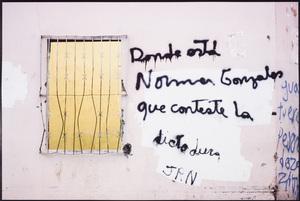 Donde está
Norma Gonzales
que conteste la
dictadura
JRN